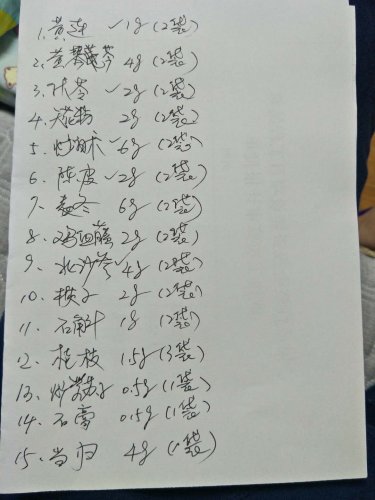 1. 黄连 ✓1g (2袋)
2. 黄芩 4g (2袋)
3. 茯苓 ✓2g (2袋)
4. 花粉 2g (2袋)
5. 炒白术 ✓6g (2袋)
6. 陈皮 ✓2g (2袋)
7. 麦冬 6g (2袋)
8. 鸡血藤 2g (2袋)
9. 北沙参 ✓4g (2袋)
10. 2g (2袋)
11. 石斛 1g (2袋)
12. 桂枝 1.5g (3袋)
13. 0.5g (1袋)
14. 石膏 0.15g (1袋)
15. 当归 4g (袋)